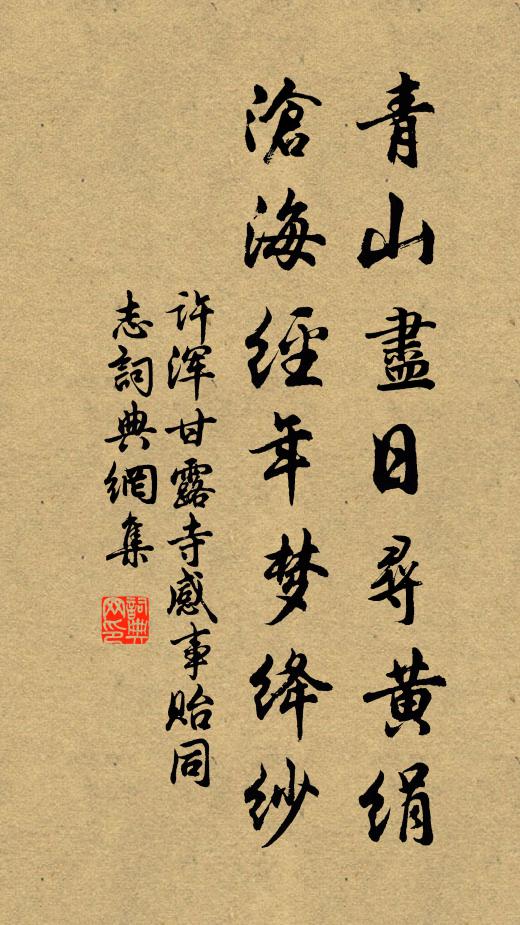 青山盡日尋黃絹
滄海經年梦絳紗
许浑甘露寺感事贻同
志詞典網集
詞典网印